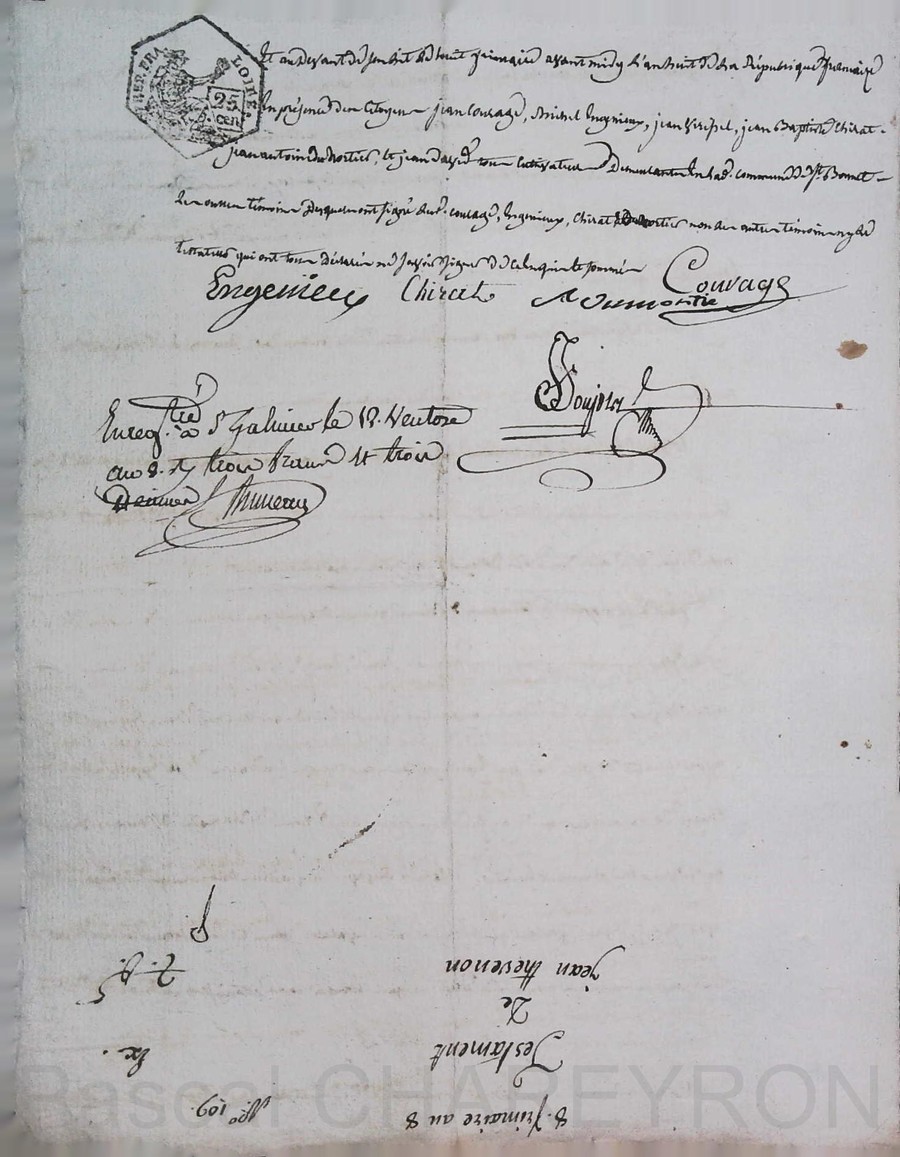 REP. FRA.
LOIRE.
25
cen
Et audevant de son lit le huit frimaire avant midy l'an huit de la République française
En présence des Citoyens jean Couvage, Michel Engenieux, jean, jean Baptiste Chirat
jean antoine Dumortier, et jean David tous Cultivateurs Demeurants en lad. commune de St Bonnet
témoins Lesquels ont signé avec. couvage, Engenieux, Chirat Dumortier non les autres témoins ny le
testateur qui ont tous Déclaré ne savoir signer de ce Enquis et sommés
Engenieux Chirat Dumortie Couvage
Enreg.tré à St Galmier le 12. Ventose
an 8. trois francs et trois
Decimes
N.o 109.
8. frimaire an 8
Ex.
Testament
De
jean thevenon
Pascal CHAREYRON